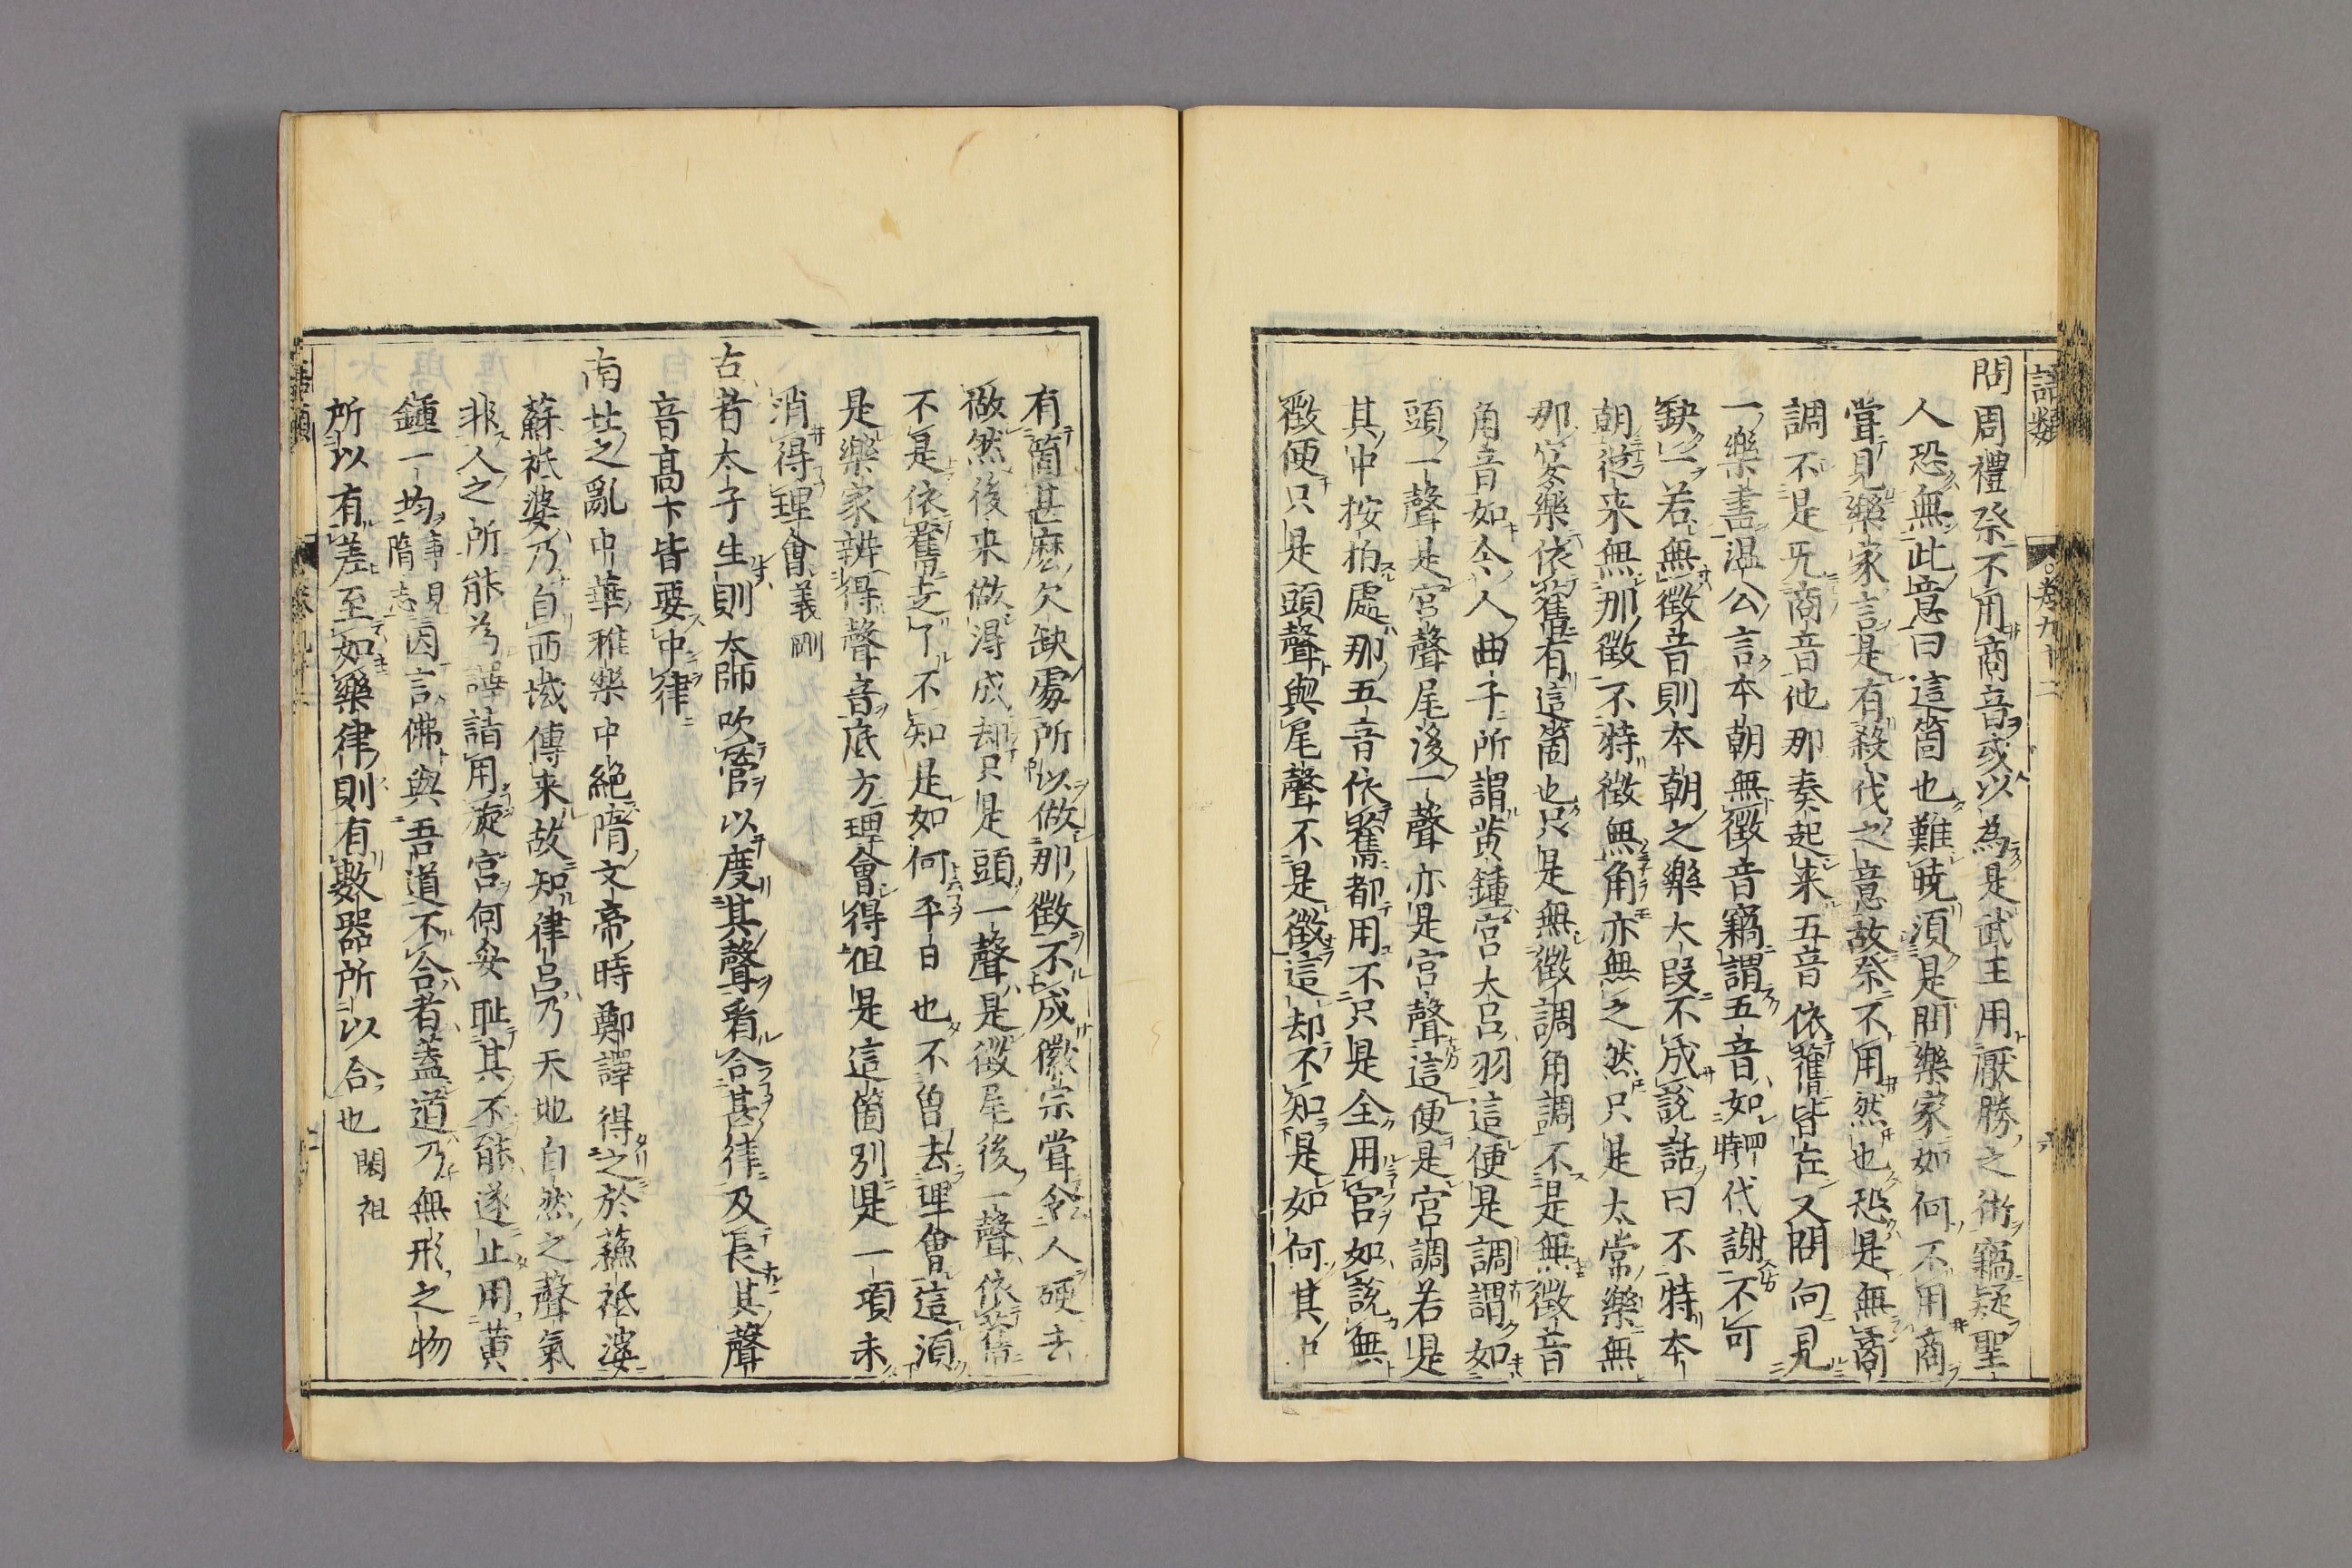 語類
卷九十二
六
問周禮祭不用商音或以為是武王用厭勝之術竊疑聖
人恐無此意曰這箇也難曉須是問樂家如何不用商
甞見樂家言是有殺伐之意故祭不用然也恐是無商
調不是無商音他那奏起来五音依舊皆在又問向見
一樂書温公言本朝無徵音竊謂五音如四時代謝不可
缺一若無徵音則本朝之樂大段不成說話曰不特本
朝從来無那徵不特徵無角亦無之然只是太常樂無
那宴樂依舊有這箇也只是無徵調角調不是無徵音
角音如今人曲子所謂黄鍾宮大吕羽這便是調謂如
頭一聲是宮聲尾後一聲亦是宮聲這便是宮調若是
其中按拍處那五音依舊都用不只是全用宮如說無
徵便只是頭聲與尾聲不是徵這却不知是如何其中
有箇甚麽欠缺處所以做那徵不成徽宗甞令人硬去
做然後来做得成却只是頭一聲是徵尾後一聲依舊
不是依舊走了不知是如何平日也不曽去理會這須
是樂家辨得聲音底方理會得但是這箇別是一項未
消得理會義剛
古者太子生則太師吹管以度其聲看合甚律及長其聲
音髙下皆要中律
南北之亂中華雅樂中絶隋文帝時鄭譯得之於蘇祇婆
蘇祇婆乃自西域傳来故知律吕乃天地自然之聲氣
非人之所能為譯請用旋宮何妥耻其不能遂止用黄
鍾一均事見隋志因言佛與吾道不合者蓋道乃無形之物
所以有差至如樂律則有數器所以合也閎祖
語類